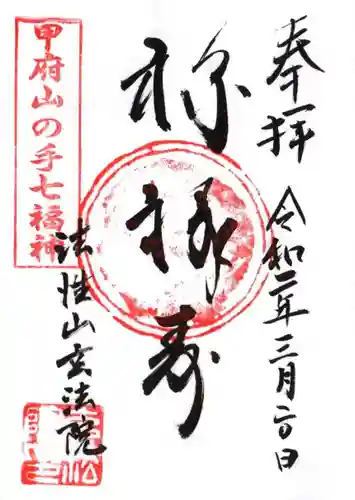 奉拝
令和二年三月二日
福禄寿
法性山玄法院
甲府山の手七福神